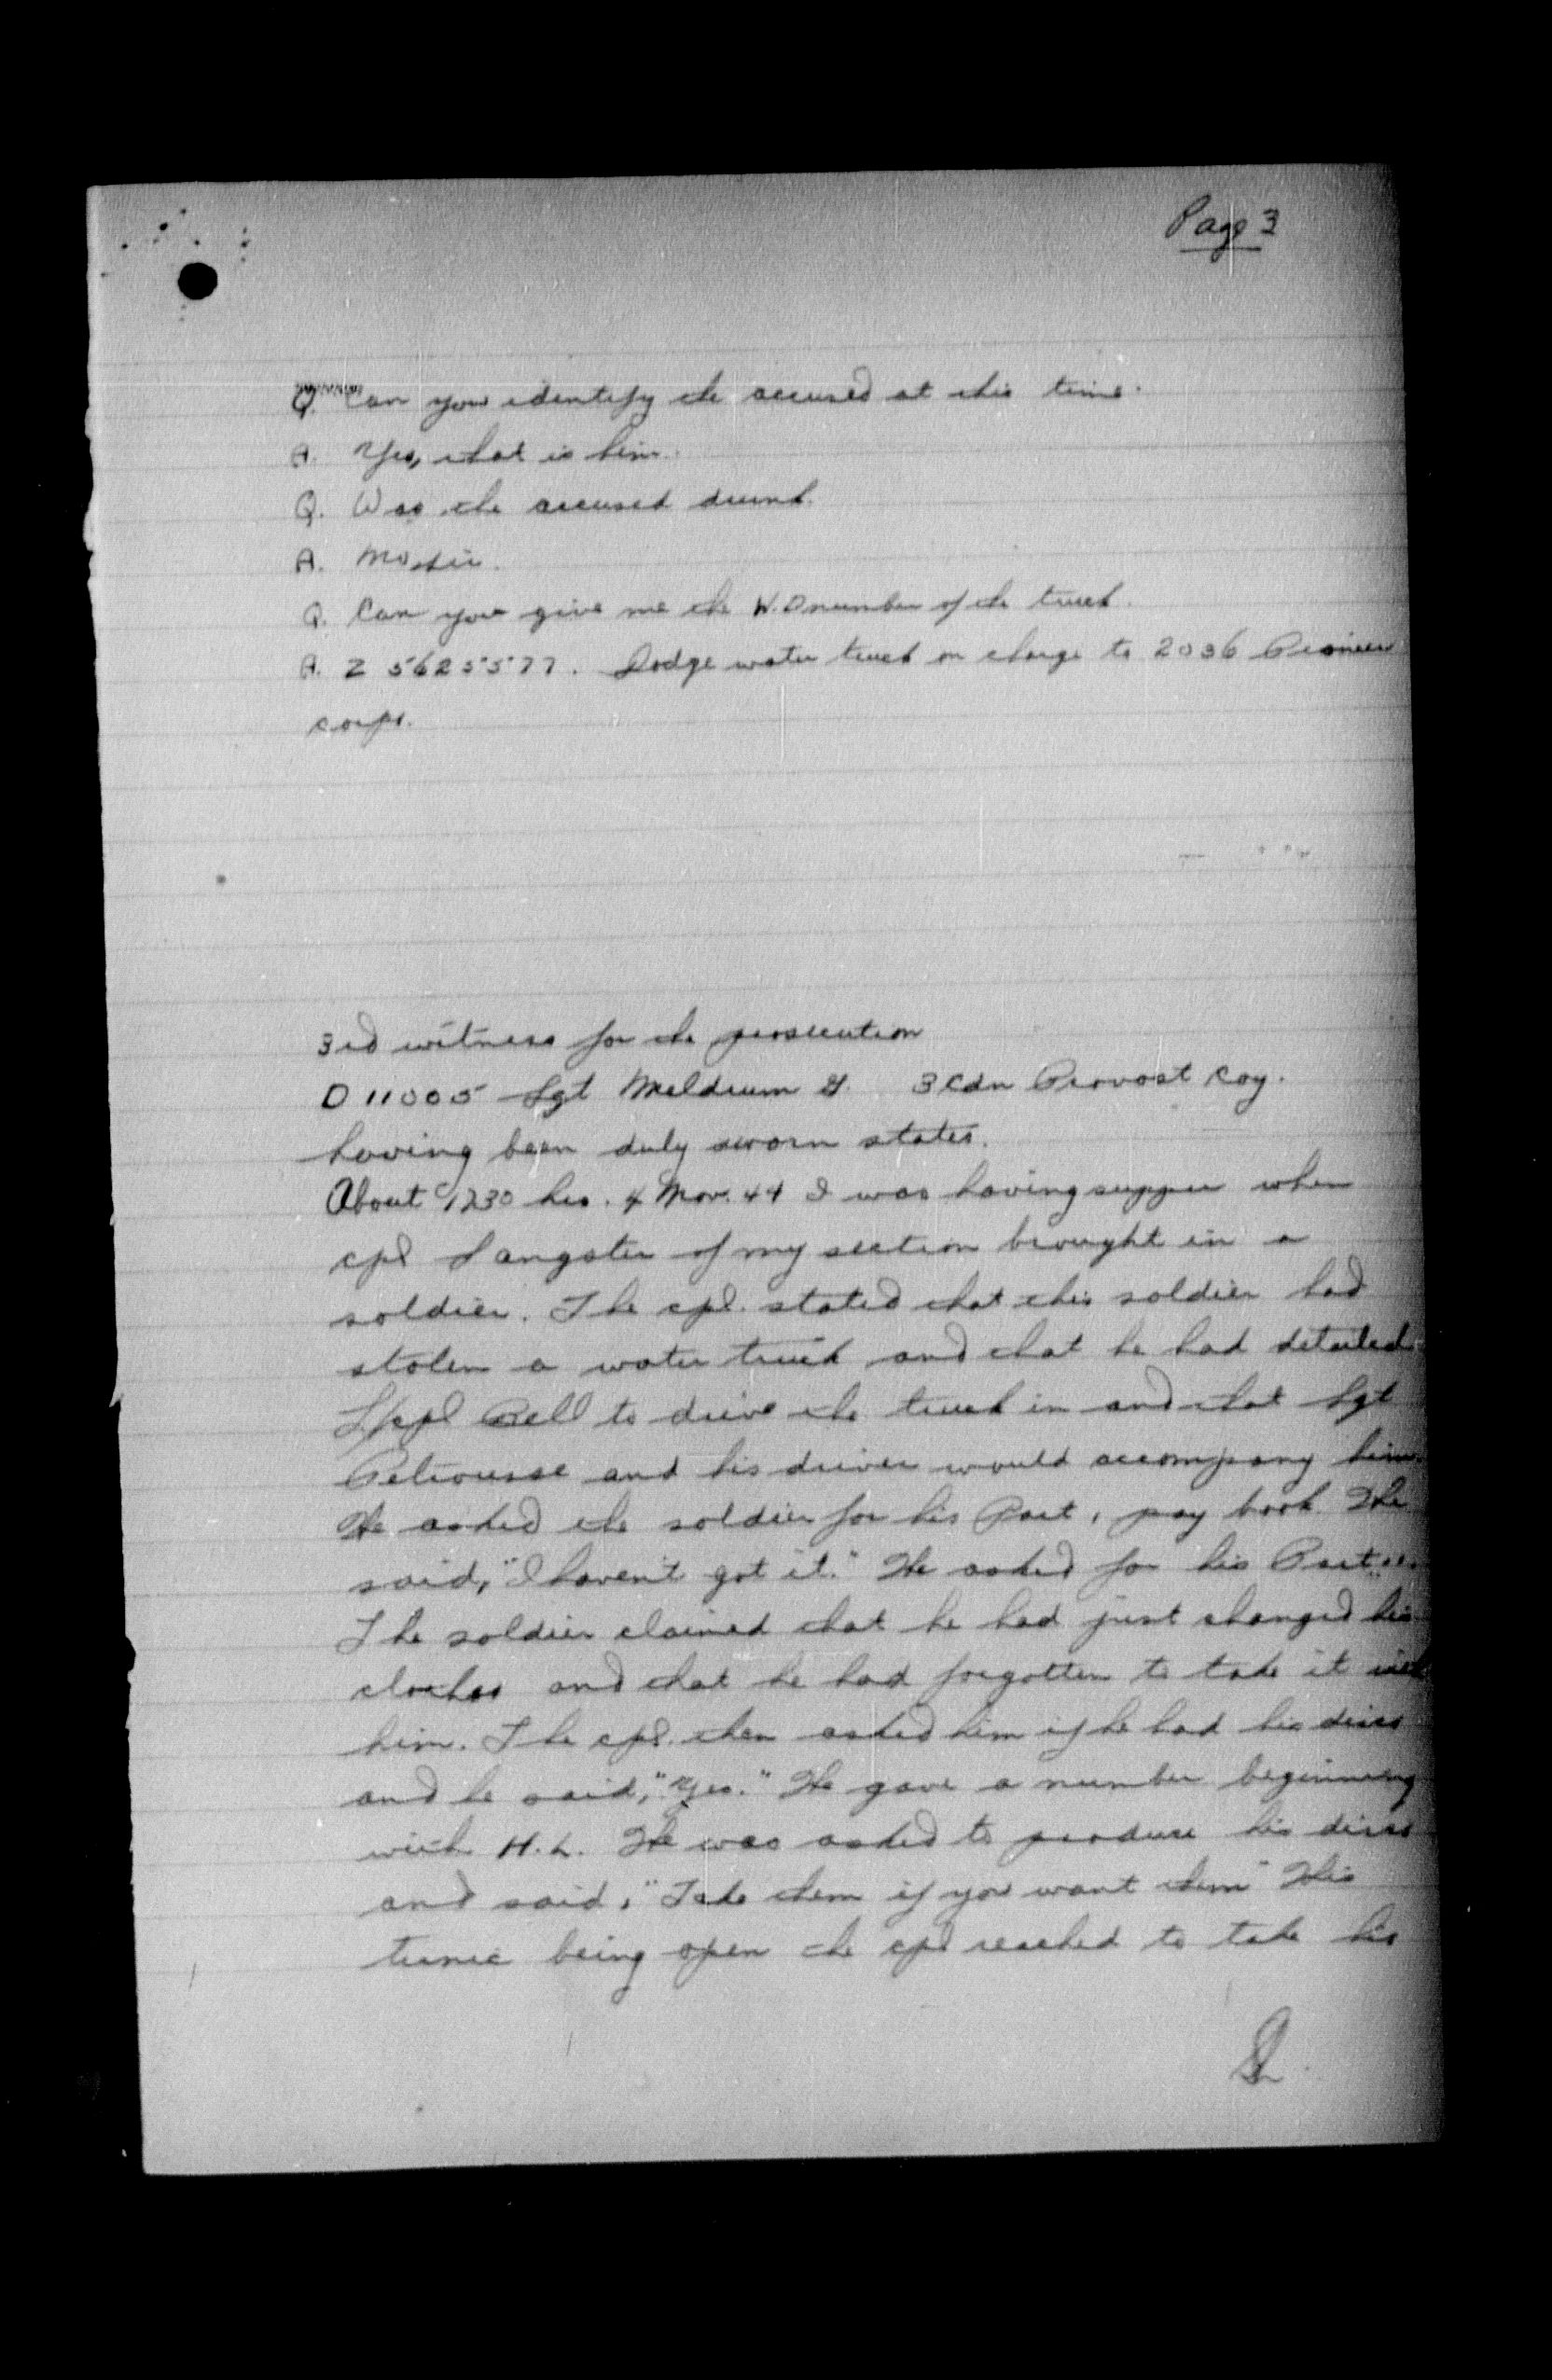 Page 3
Q. Can you identify the accused at this time.
A. Yes, that is him.
Q. Was the accused drunk.
A. No sir.
Q. Can you give me the W.D number of the truck.
A. Z 5625577. Dodge water truck on charge to 2036 Pioneer
corps.
3rd witness for the prosecution
D 11005 Sgt Meldrum G. 3 Cdn Provost Coy.
having been duly sworn states.
About 1230 hrs. 4 Nov. 44 I was having supper when
cpl Sangster of my section brought in a
soldier. The cpl. stated that this soldier had
stolen a water truck and that he had detailed
L/cpl Bell to drive the truck in and that Sgt
and his driver would accompany him.
He asked the soldier for his Part, pay book. He
said, "I haven't got it." He asked for his Part
The soldier claimed that he had just changed his
clothes and that he had forgotten to take it with
him. The cpl. then asked him if he had his discs
and he said, "Yes." He gave a number beginning
with H.L. He was asked to produce his discs
and said, "Take them if you want them" His
tunic being open the cpl reached to take his